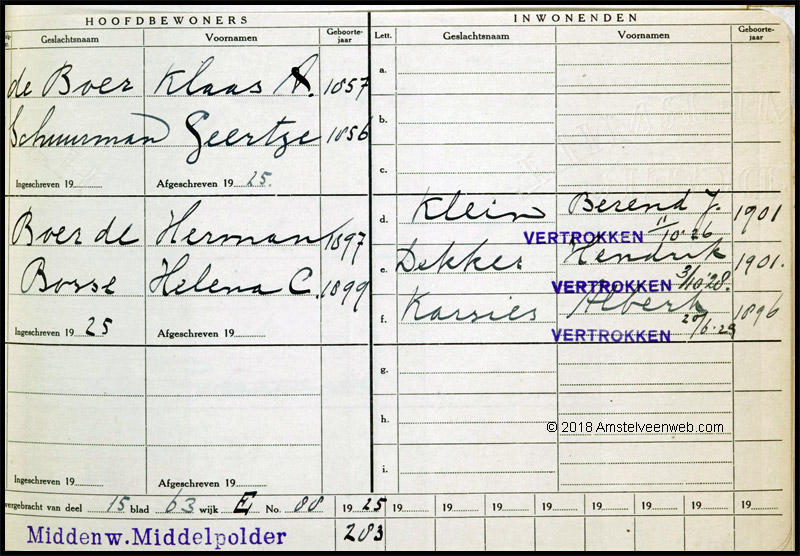 HOOFDBEWONERS
Geslachtsnaam Voornamen Geboorte-jaar
de Boer Klaas A. 1857
Schuurman Geertje 1856
Ingeschreven 19 Afgeschreven 19 25.
Boer de Herman 1897
Bosse Helena C. 1899
Ingeschreven 19 25 Afgeschreven 19
Ingeschreven 19 Afgeschreven 19
INWONENDEN
Lett. Geslachtsnaam Voornamen Geboorte-jaar
a.
b.
c.
d. Klein Berend J. 1901
VERTROKKEN 11/10·26
e. Dekker Hendrik 1901.
VERTROKKEN 3/10·28.
f. Karsies Albert 1896
VERTROKKEN 20/6·29
g.
h.
i.
© 2018 Amstelveenweb.com
overgebracht van deel 15 blad 63 wijk E No. 88 19 25 19 19 19 19 19 19 19 19
Middenw. Middelpolder 283